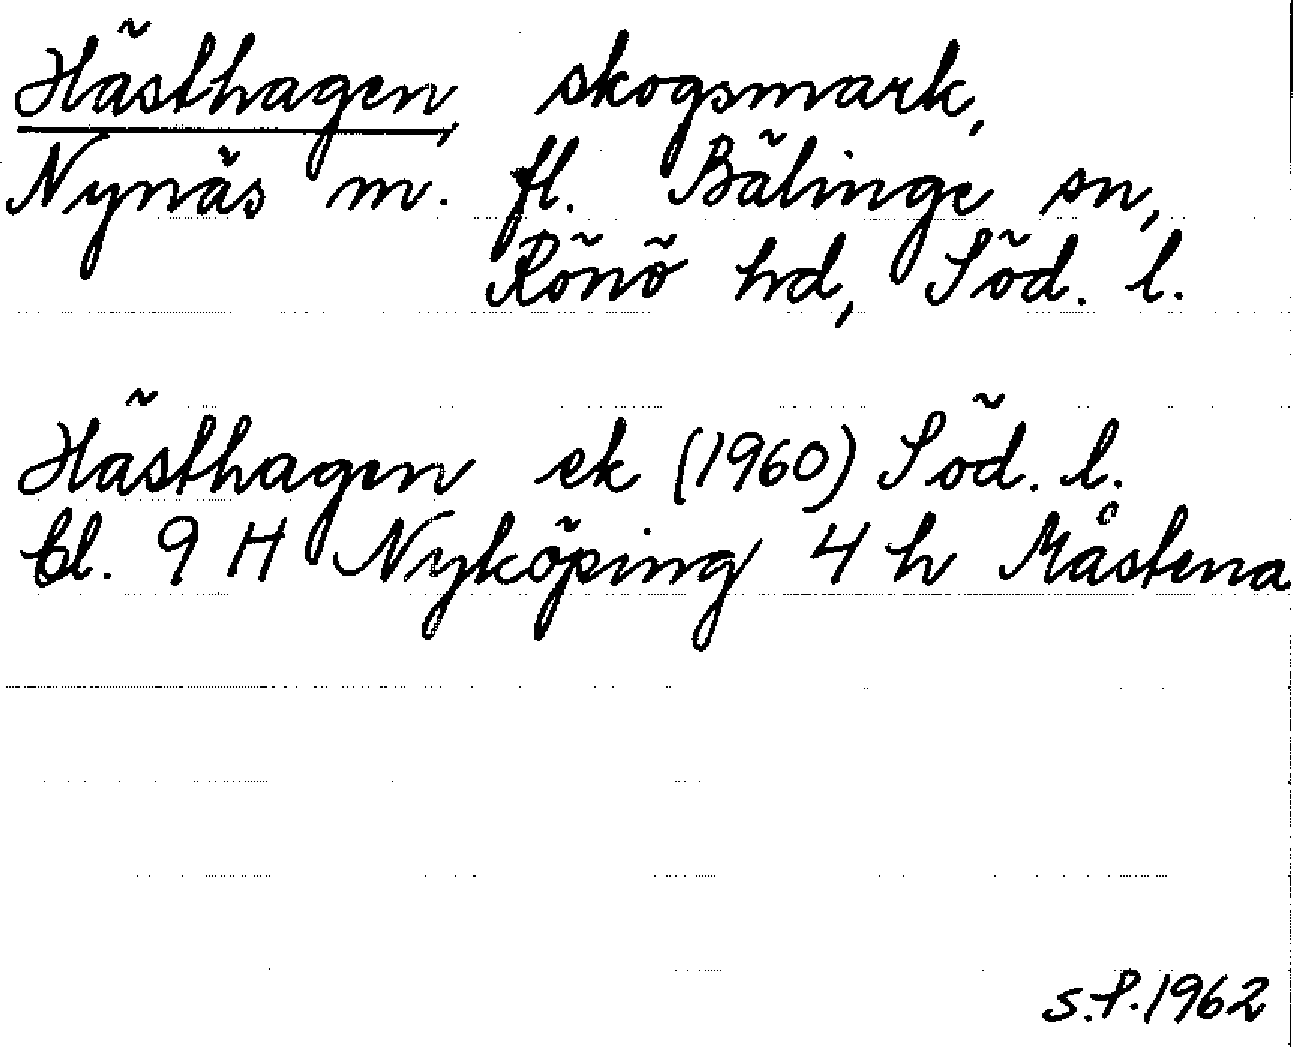 Hästhagen, skogsmark,
Nynäs m. fl. Bälinge sn,
Rönö hd, Söd. l.
Hästhagen ek (1960) Söd. l.
bl. 9 H Nyköping 4 h Måstena
S.P. 1962